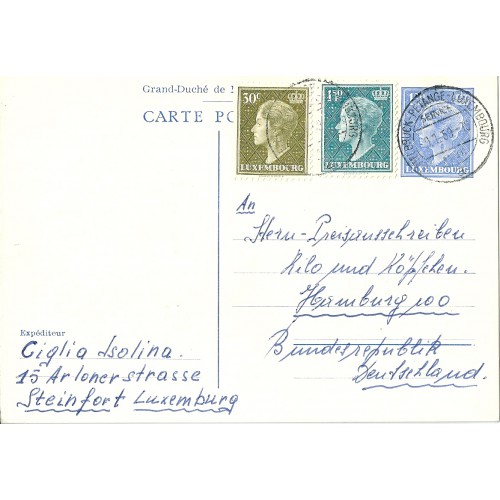 Grand-Duché de
CARTE PO
30c
LUXEMBOURG
1F50
LUXEMBOURG
LUXEMBOURG
PETANGE-LUXEMBOURG
An
Stern-Preisausschreiben
Hilo und Köpfchen.
Hamburg 100
Bundesrepublik
Deutschland.
Expéditeur
Ciglia Isolina.
15 Arlonerstrasse
Steinfort Luxemburg